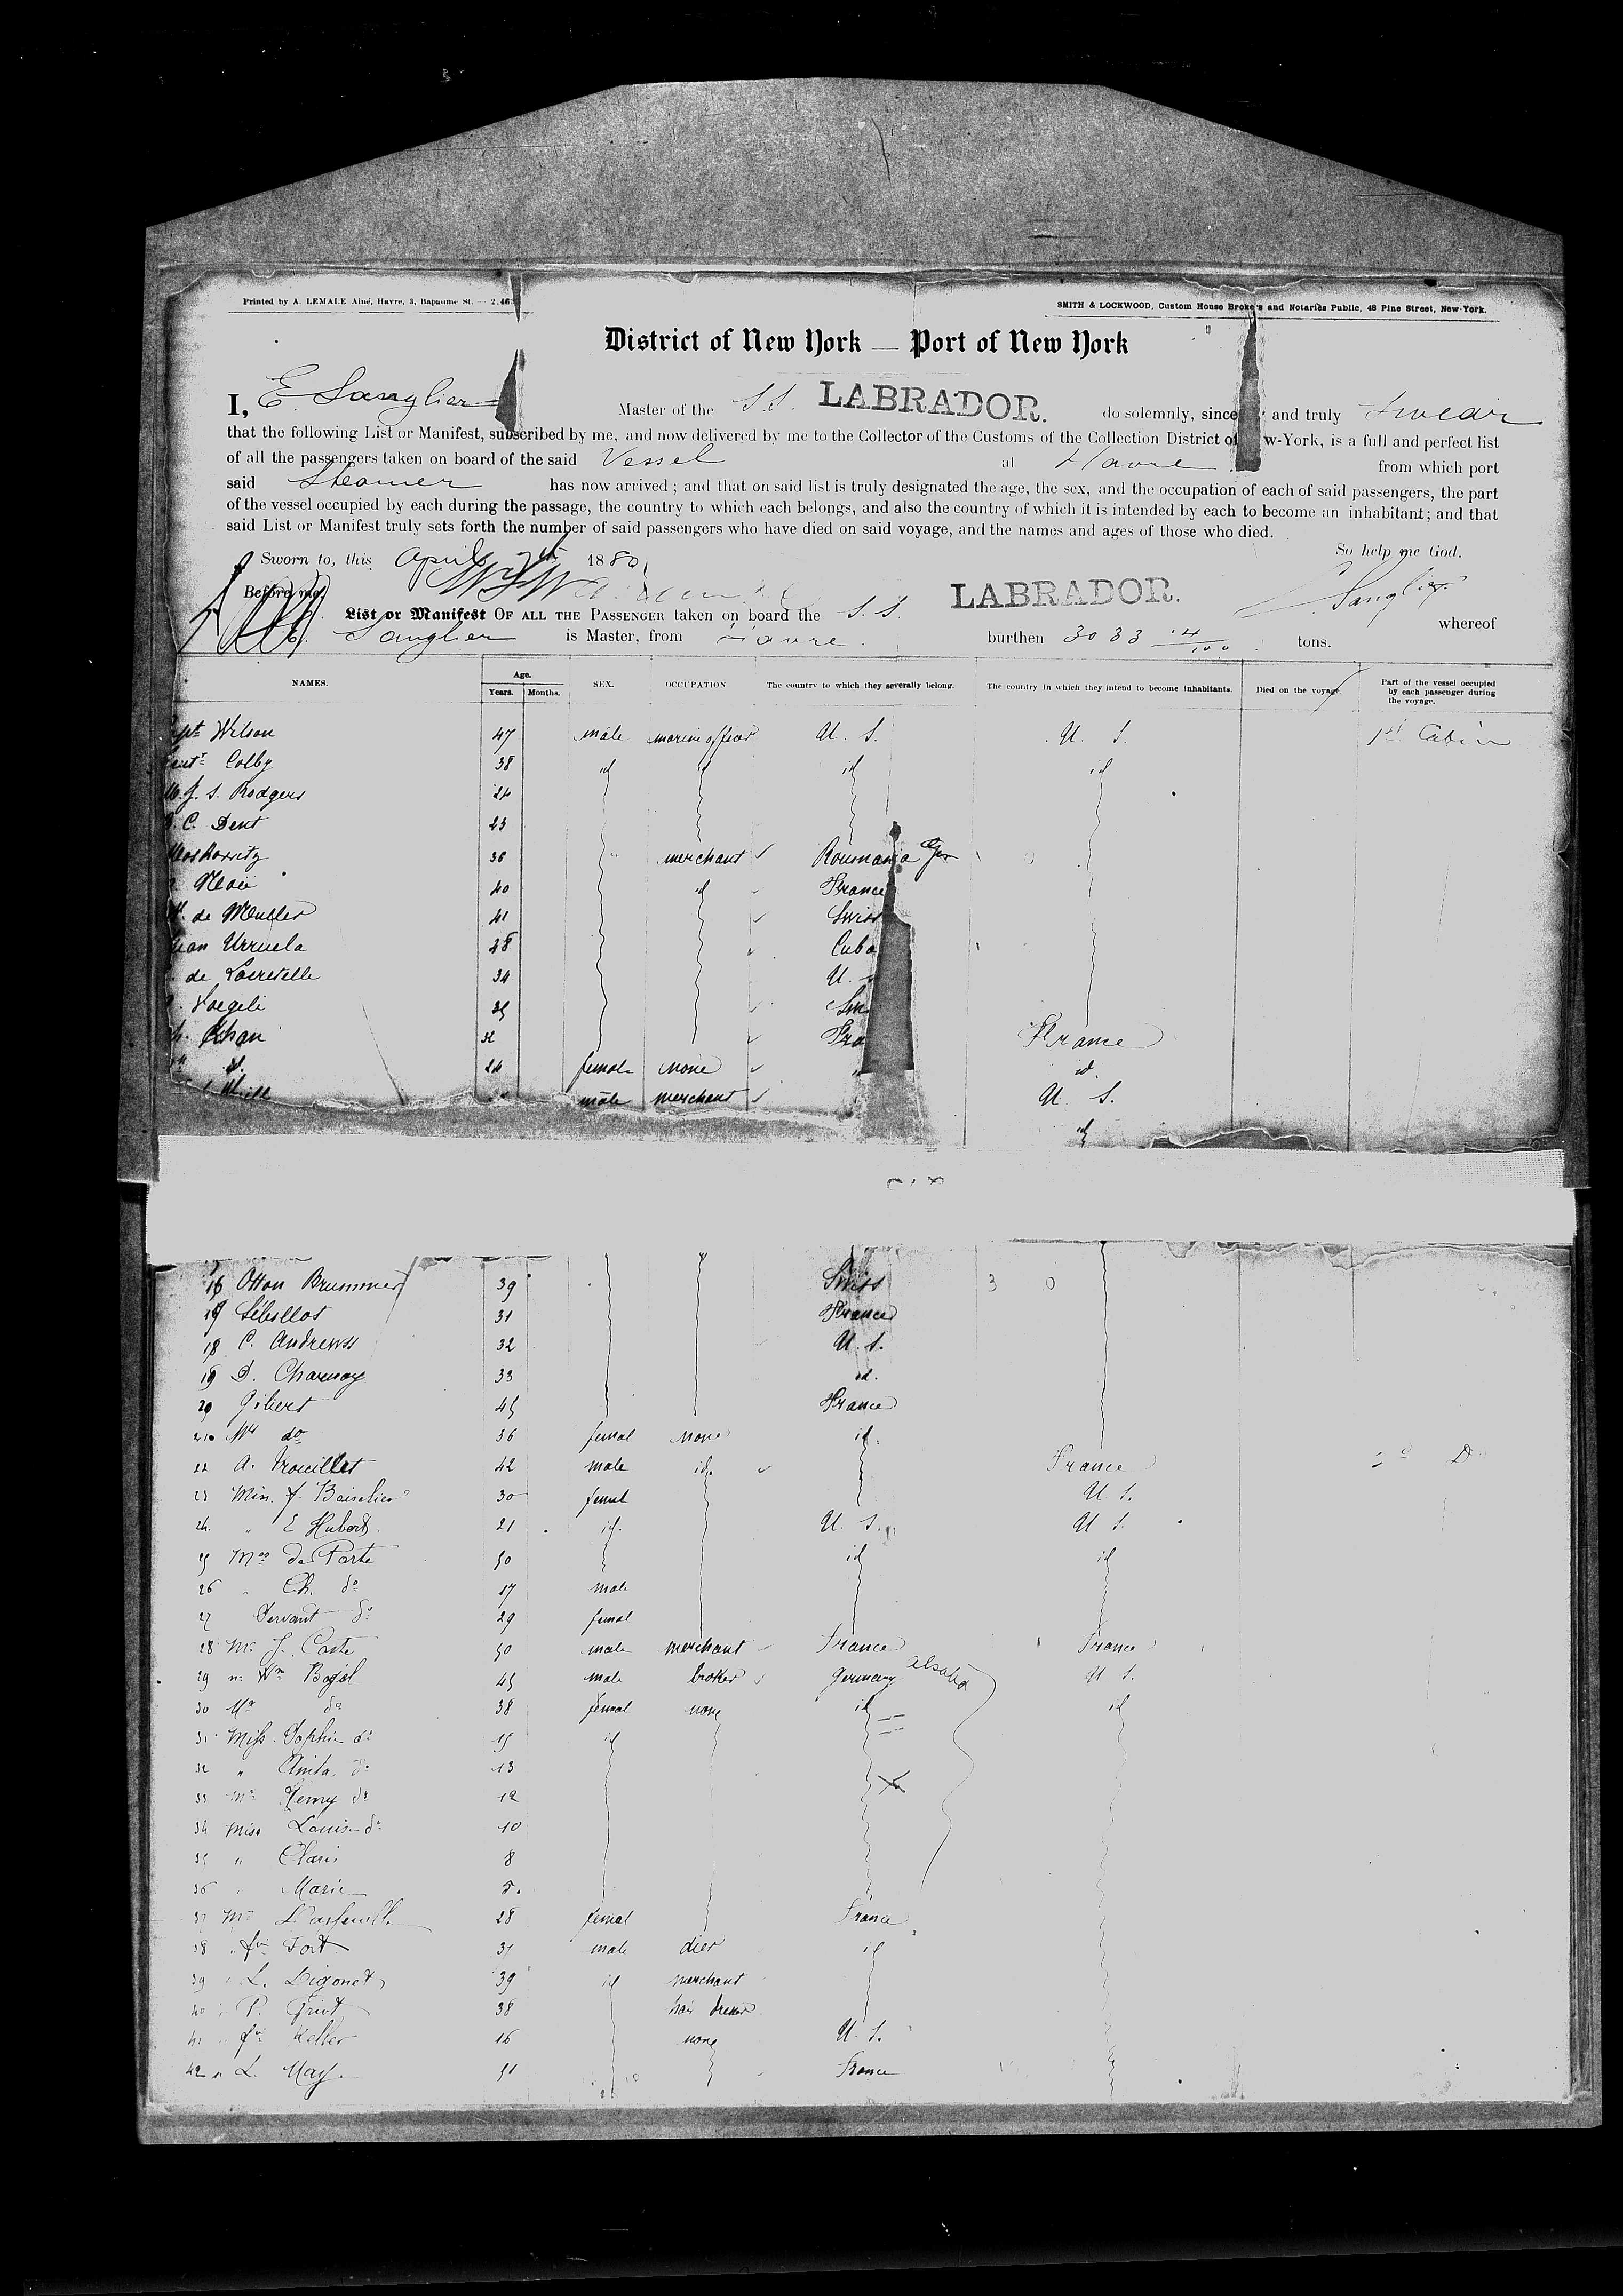 Printed by A. LEMALE Aîné, Havre, 3, Bapaume St.
SMITH & LOCKWOOD, Custom House Brokers and Notaries Public, 48 Pine Street, New-York.
District of New York — Port of New York
I, E. Sanglier Master of the S.S. LABRADOR. do solemnly, since and truly swear
that the following List or Manifest, subscribed by me, and now delivered by me to the Collector of the Customs of the Collection District of w-York, is a full and perfect list
of all the passengers taken on board of the said Vessel at Havre from which port
said Steamer has now arrived ; and that on said list is truly designated the age, the sex, and the occupation of each of said passengers, the part
of the vessel occupied by each during the passage, the country to which each belongs, and also the country of which it is intended by each to become an inhabitant; and that
said List or Manifest truly sets forth the number of said passengers who have died on said voyage, and the names and ages of those who died.
Sworn to, this April 7th 1880 So help me God.
Before me Sanglier
List or Manifest OF ALL THE PASSENGER taken on board the S.S. LABRADOR. whereof
Sanglier is Master, from Havre burthen 3033 14/100 tons.
NAMES. Age. Years. Months. SEX. OCCUPATION The country to which they severally belong. The country in which they intend to become inhabitants. Died on the voyage Part of the vessel occupied by each passenger during the voyage.
Wilson 47 male marine officer U. S. U. S. 1st Cabin
Colby 38 id id id id
J. S. Rodgers 24
C. Dent 23
36 merchant Roumania Ger
40 id France
de Meuller 41 Swiss
Urruela 28 Cuba
de 34 U.
Voegeli
Khan 32 Fra France
id. 24 female none id.
male merchant U. S.
id
16 Otton Brummer 39 Swiss 3 0
19 Sébillot 31 France
18 C. Andrews 32 U. S.
19 D. Charnay 33 id.
20 Gibert 45 France
do 36 femal none id.
22 A. Trouillet 42 male id. France
23 Miss. J. 30 femal U. S.
24. " E Hubert. 21 id. U. S. U S.
25 de Porte 50 id id
26 " Ch. do 17 male
27 Servant do 29 femal
28 Mr J. Coste 50 male merchant France France
29 Wm 45 male broker Germany Alsatia U S.
30 Mrs do 38 femal none id id
31 Miss. Sophie do 15 id
32 " Anita do 13
33 Mr Henry do 12
34 Miss Louise do 10
35 " Claris 8
36 " Marie 5.
37 28 femal France
38 " Fort 31 male dier id
39 " L. Digonet 39 id merchant
40 " P. Griot 38 hair dresser
41 " Keller 16 none U. S.
42 " L. May. 51 France